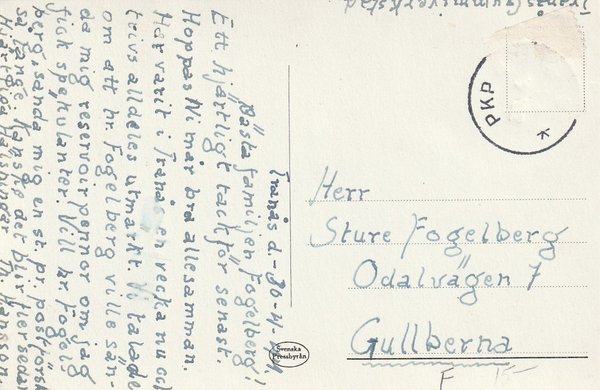 Tranås d. 30-4-
Bästa familjen Fogelberg!
Ett hjärtligt tack för senast.
Hoppas Ni mår bra allesamman.
Har varit i Tranås en vecka nu och
trivs alldeles utmärkt. Vi talade
om att hr. Fogelberg ville sän-
da mig reservoirpennor om jag
fick spekulanter. Vill hr Fogel-
berg, sända mig en st. pr. postförsk
så länge. Kanske det blir fler sedan
Hjärtliga Hälsningar Hansson
Tranås Gummiverkstad
PKP
Herr
Sture Fogelberg
Odalvägen 7
Gullberna
F
Svenska
Pressbyrån